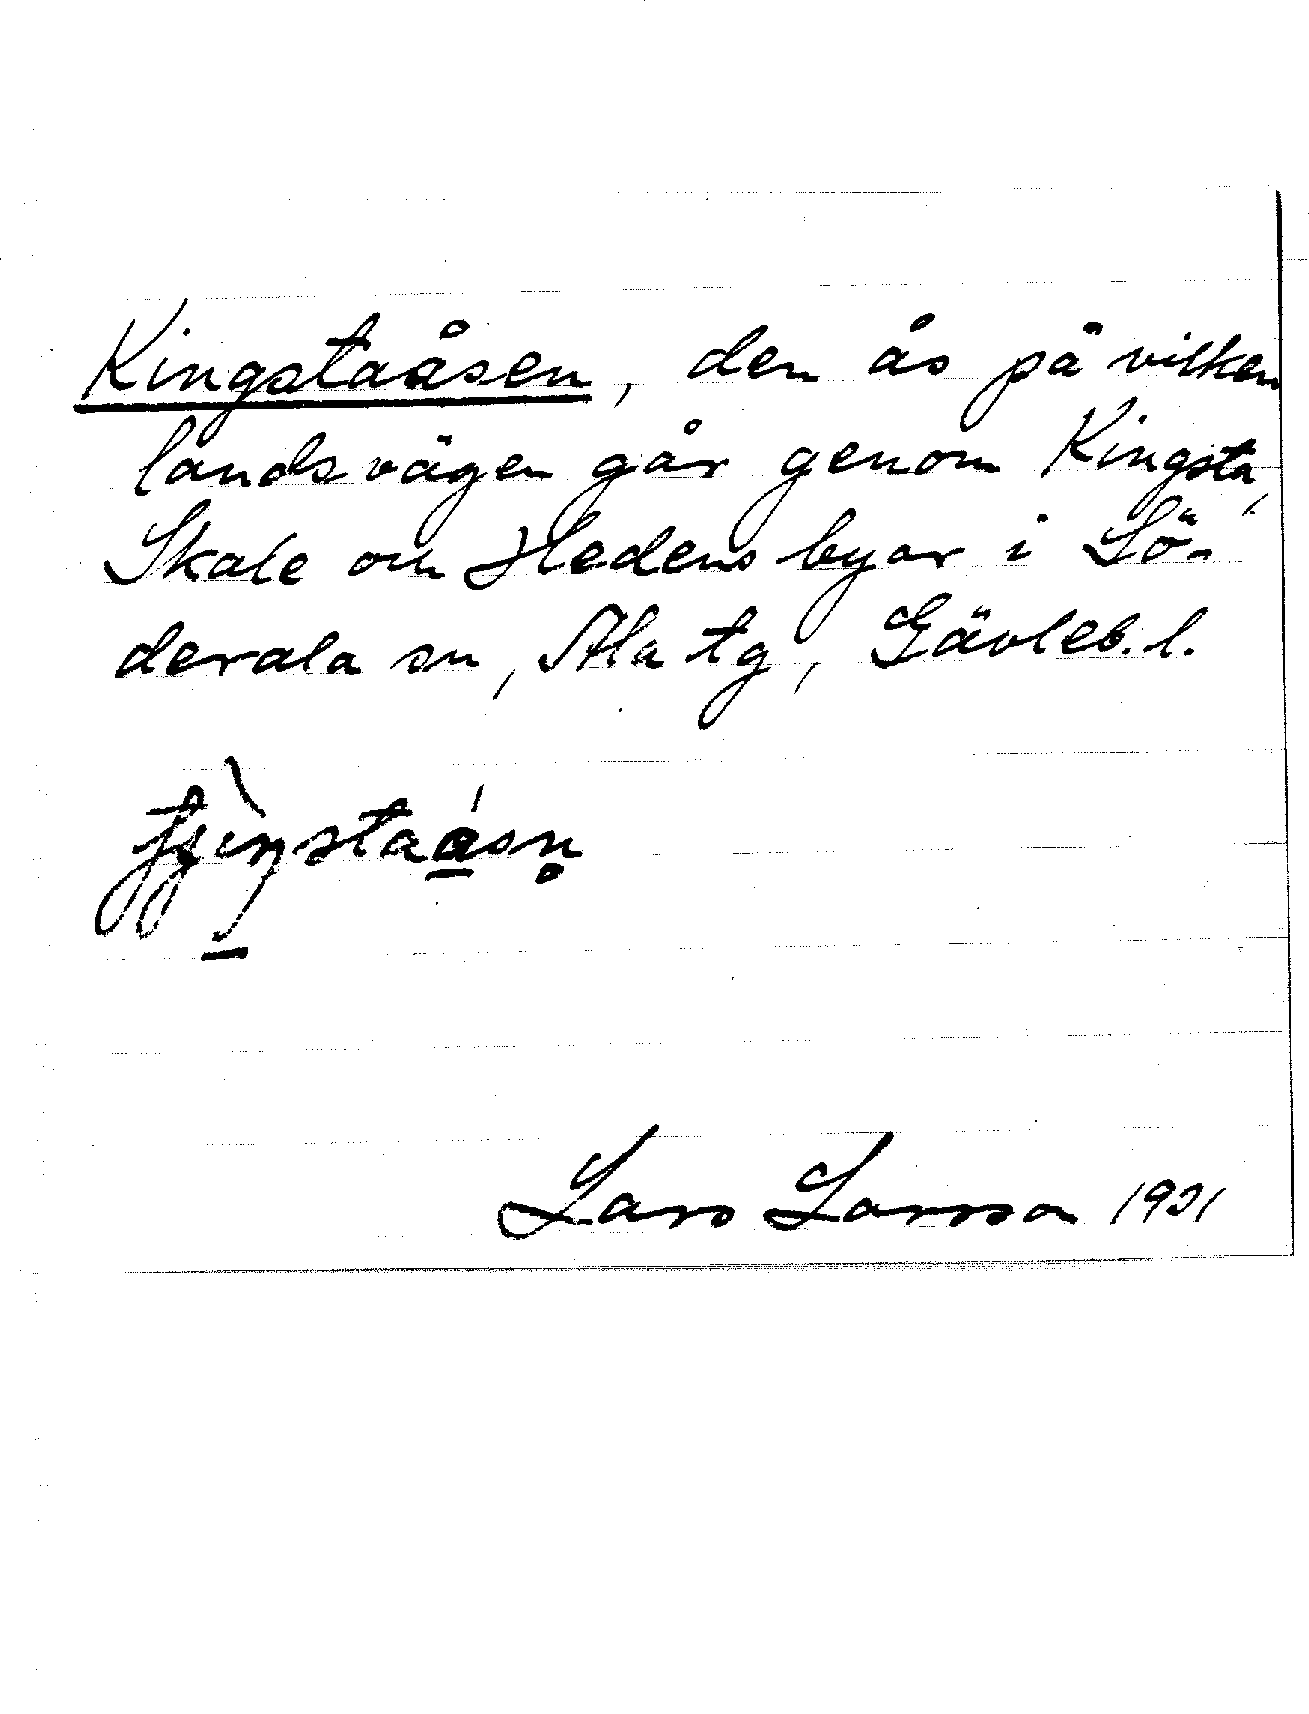 Kingstaåsen, den ås på vilken
landsvägen går genom Kingsta,
Skale om Hedens byar i Sö-
derala sn, Ala tg, Gävleb. l.
Lars Larsson 1921